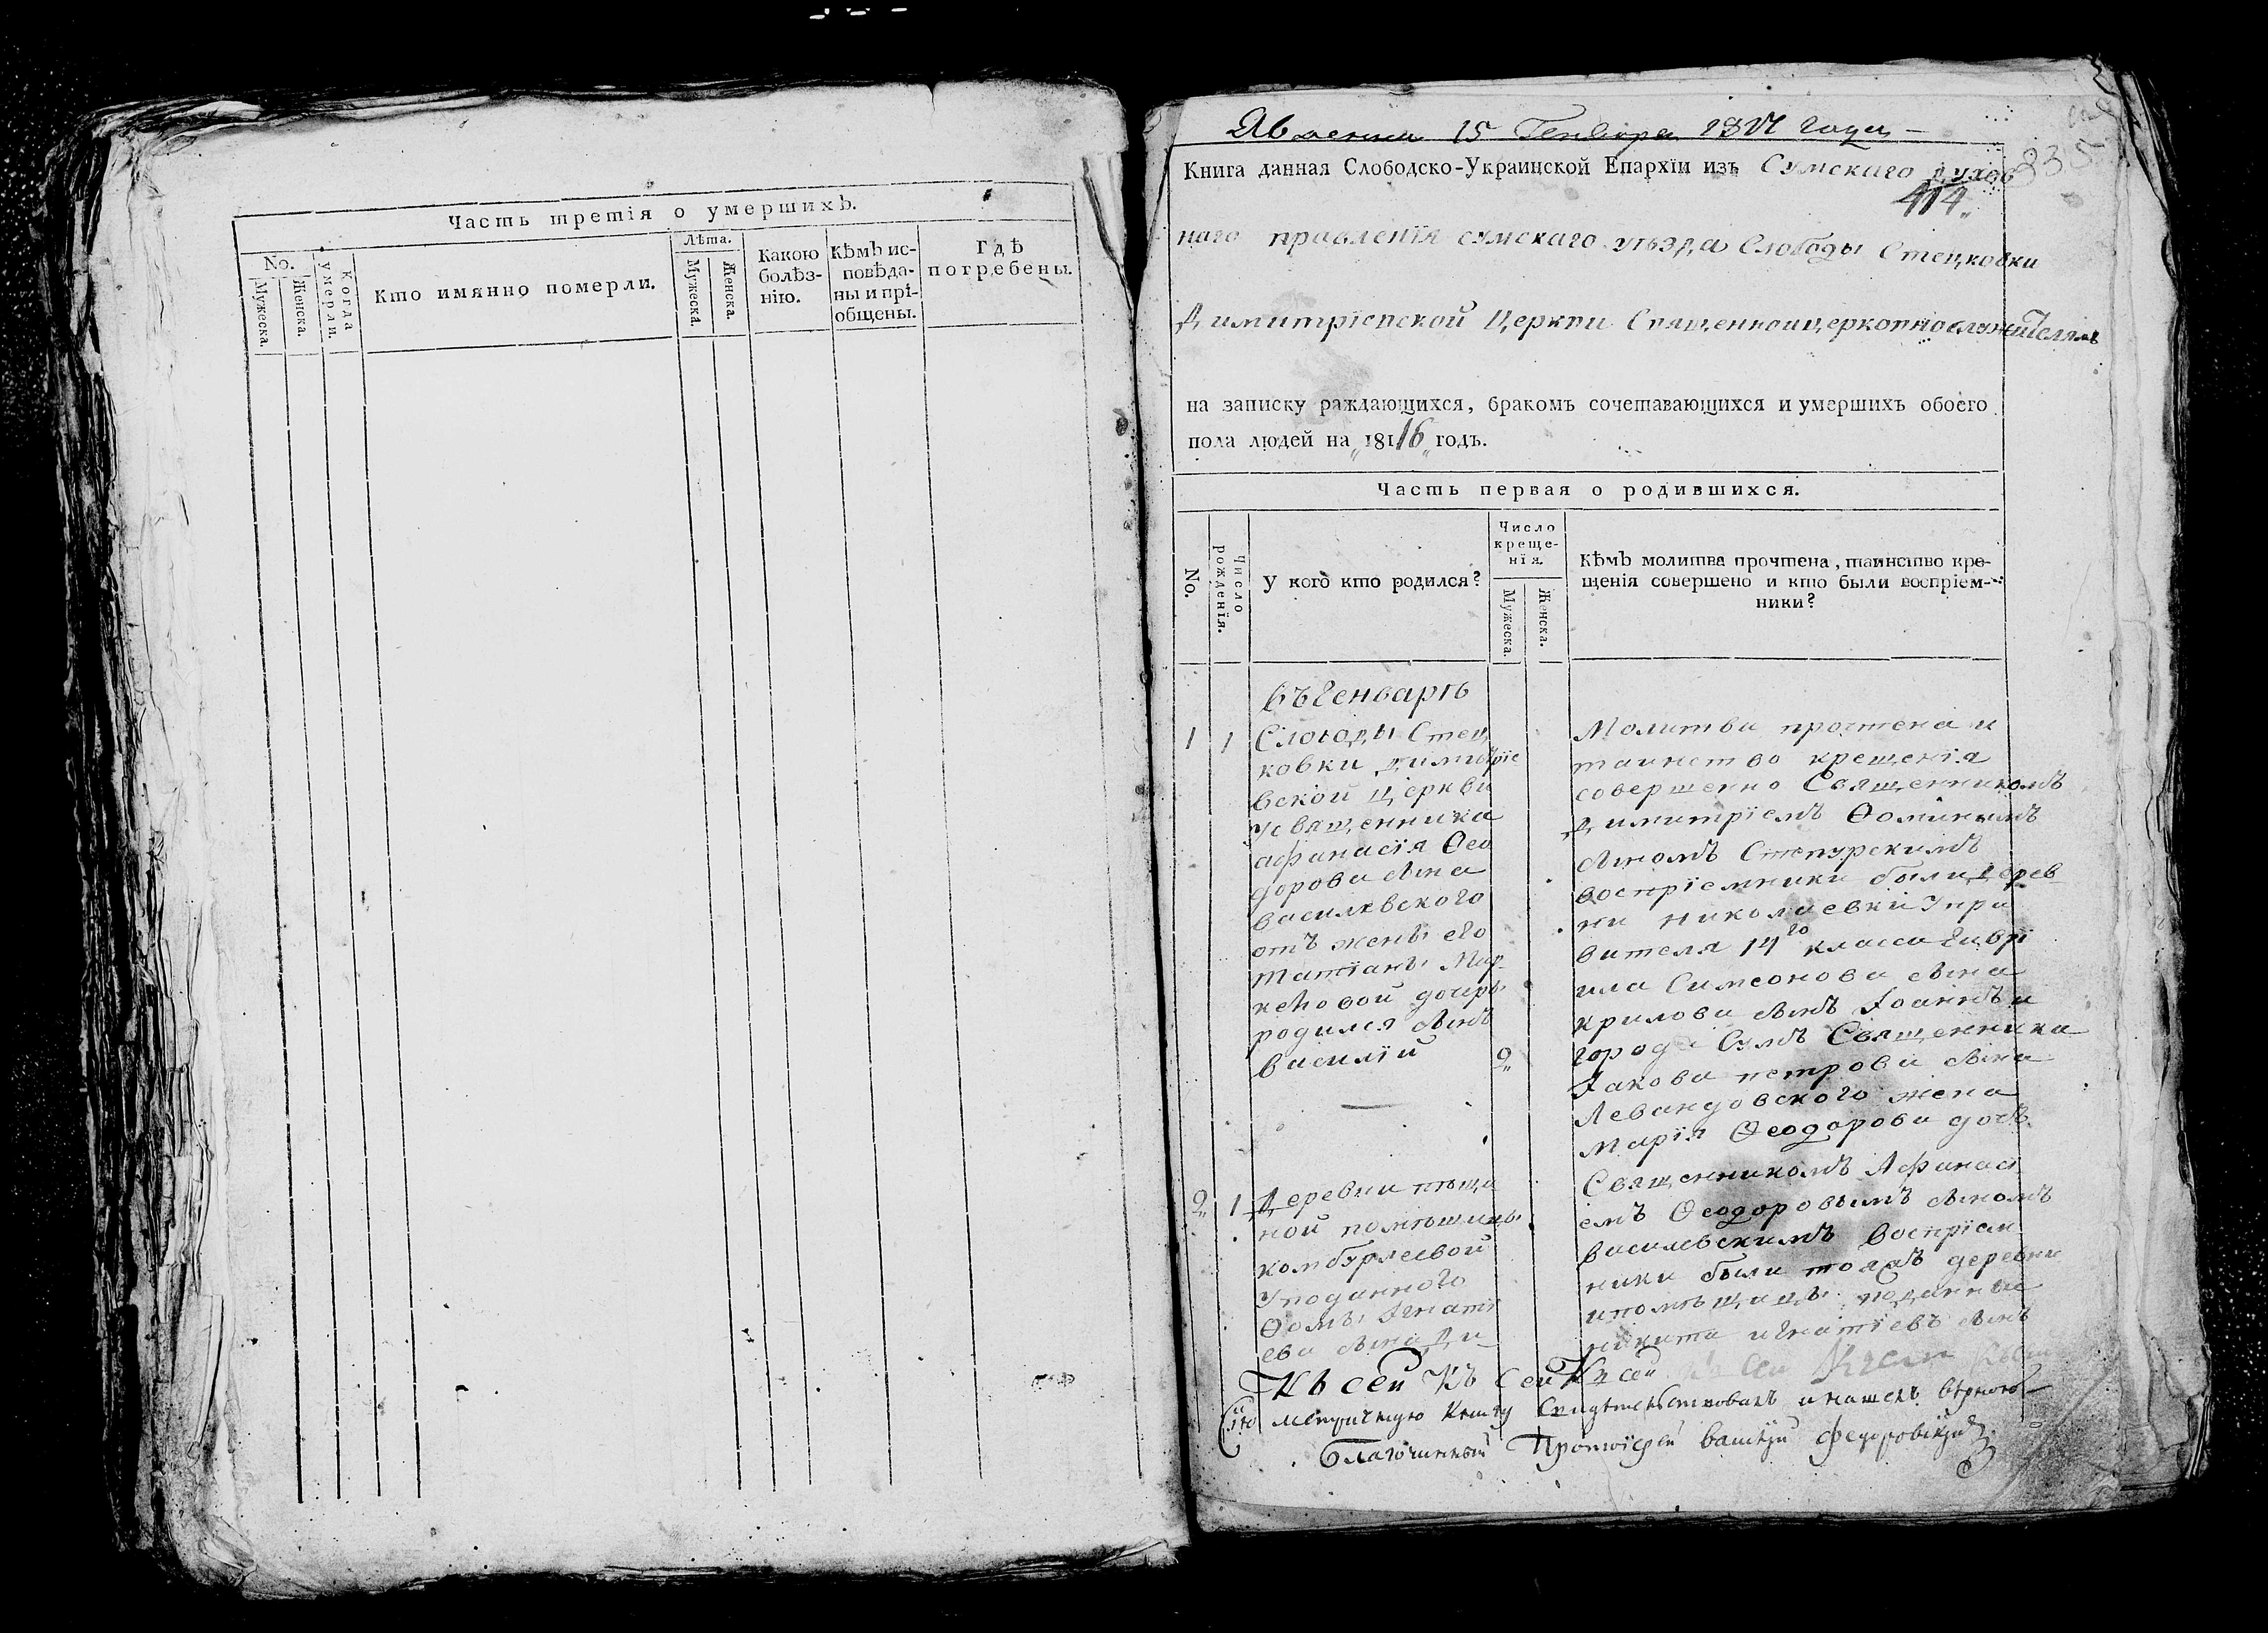 Часть третія о умершихъ.
No.
Мужеска.
Женска.
Когда умерли.
Кто имянно померли.
Лѣта.
Мужеска.
Женска.
Какою
болѣз-
нію.
Кѣмъ ис-
повѣда-
ны и прі-
общены.
Гдѣ
погребены.
15 Генваря 1817 года
Книга данная Слободско-Украинской Епархїи изъ Сумскаго духов
414
наго правленїя сумскаго уѣзда Слободы Стецковки
Димитрїевской Церкви Священноицерковнослужителямъ
на записку раждающихся, бракомъ сочетавающихся и умершихъ обоего
пола людей на 18116 годъ.
Часть первая о родившихся.
No.
Число рожденїя.
У кого кто родился?
Число
креще-
нїя.
Мужеска.
Женска.
Кѣмъ молитва прочтена, таинство кре-
щенія совершено и кто были воспріем-
ники?
въ Генварѣ
1 1 Слободы Стец
ковки димитрїе
вской церкви
у священника
афанасїя Ѳео
дорова сына
василевского
отъ жены его
татїаны Мар
келовой дочери
родился сынъ
василїй 2
Молитва прочтена и
таинство крещенїя
совершено Священникомъ
Димитрїемъ Ѳоминымъ
сыномъ Степурскимъ
воспрїемники были дерев
ни николаевки Упра
вителя 14го класса Гаврї
ила Симеонова сына
крилова сынъ Іоаннъ и
города Сумъ Священника
Іакова петрова сына
Левандовского жена
марїя Ѳеодорова дочь
2 1 Деревни пѣща
ной помѣщицы
комбурлеевой
у поданного
Ѳомы Игнатї
ева сына Ди
Священникомъ Афанасї
емъ Ѳеодоровымъ сыномъ
василевскимъ воспрїем
ники были тояжъ деревни
ипомѣщицы поданные
никита игнатїевъ сынъ
Къ сей Къ сей Къ сей
Сїю метричную Книгу Свидетельствовалъ и нашелъ вѣрною
Благочинный Протоїерей Василїй Федоровскїй